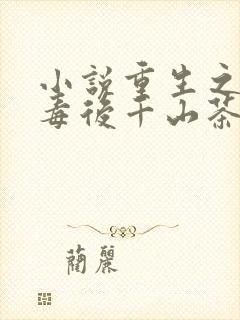 小說重生之
毒後千山茶
蘭麗